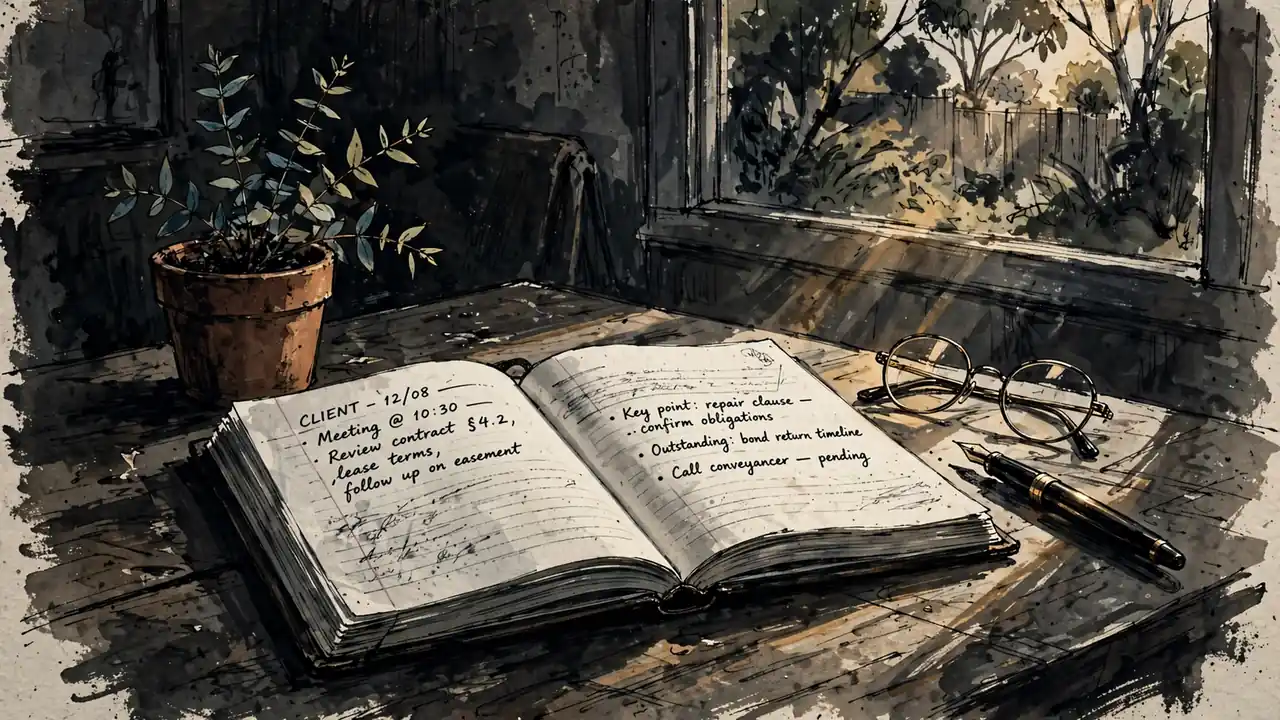 CLIENT – 12/08
• Meeting @ 10:30 —
• Review contract §4.2,
lease terms,
follow up on easement
• Key point: repair clause —
confirm obligations
• Outstanding: bond return timeline
• Call conveyancer — pending